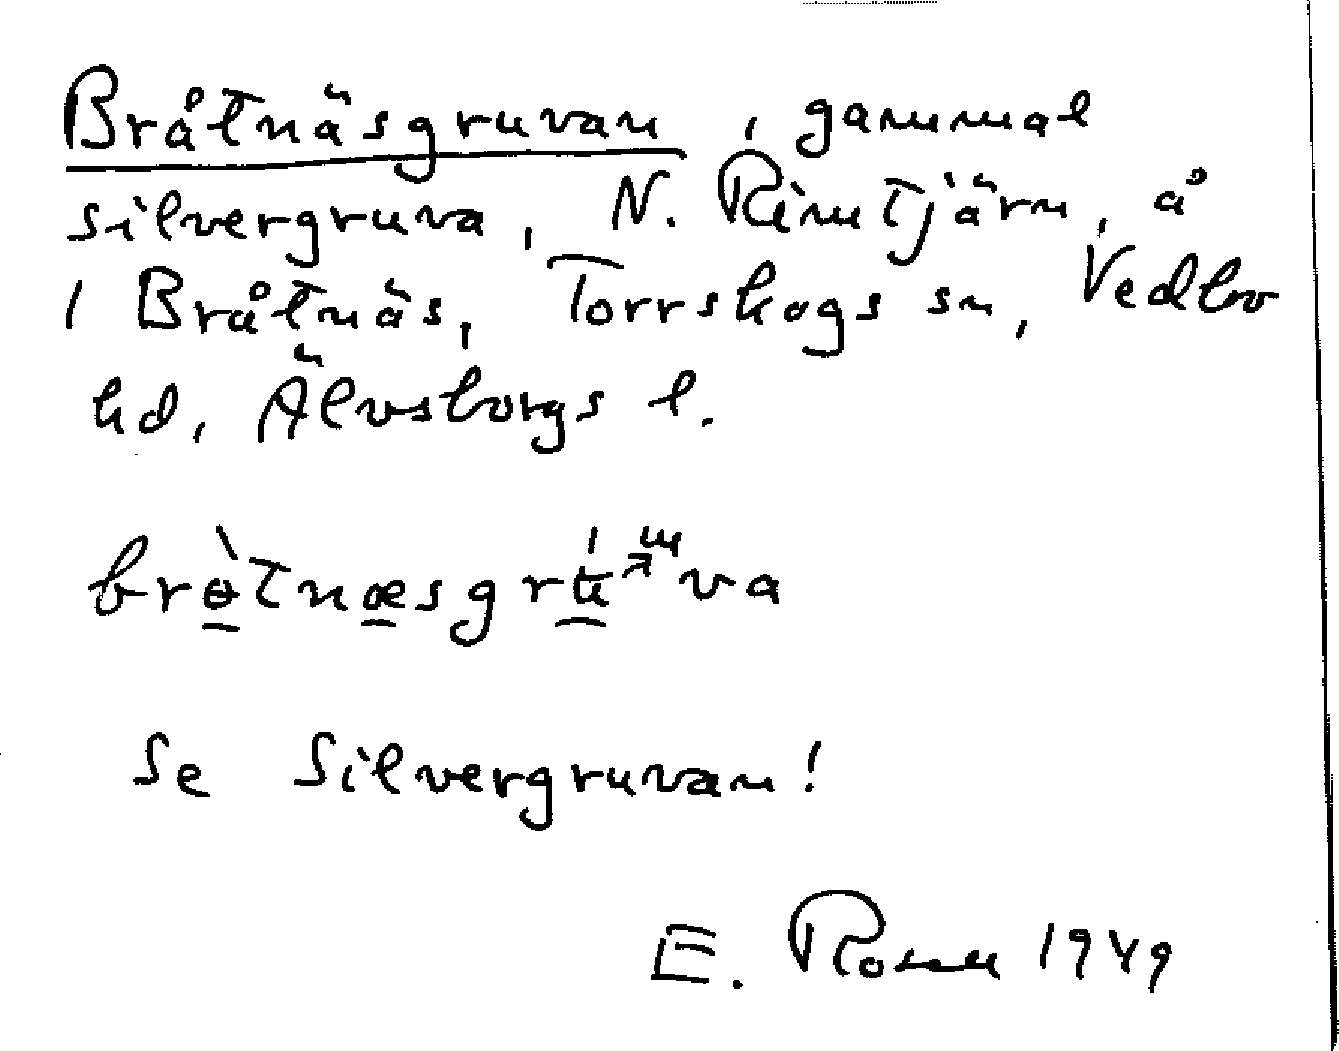 Bråtnäsgruvan, gammal
silvergruva, N. Rämtjärn, å
1 Bråtnäs, Torrskogs sn, Vedbo
hd, Älvsborgs l.
Se Silvergruvan!
E. Rosell 1949